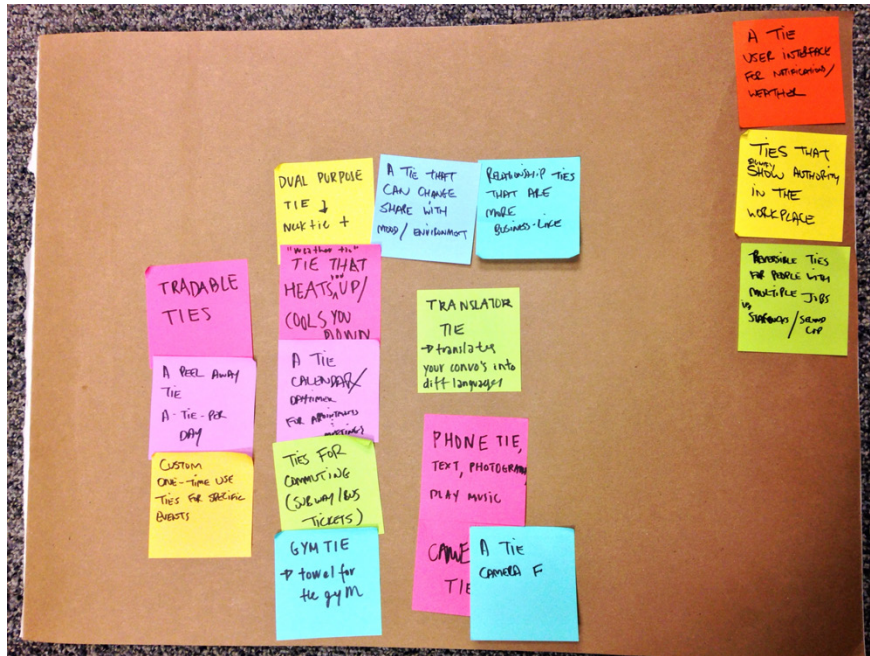 A TIE
USER INTERFACE
FOR NOTIFICATION/
WEATHER
TIES THAT
SHOW AUTHORITY
IN THE
WORKPLACE
REVERSIBLE TIES
FOR PEOPLE WITH
MULTIPLE JOBS
STARBUCKS / SECOND
CUP
DUAL PURPOSE
TIE
Necktie +
A TIE THAT
CAN CHANGE
SHARE WITH
MOOD/ ENVIRONMENT
RELATIONSHIP TIES
THAT ARE
MORE
BUSINESS-LIKE
"weather tie"
TIE THAT
HEATS UP/
COOLS YOU
DOWN
TRADABLE
TIES
TRANSLATOR
TIE
→ translates
your convo's into
diff languages
A PEEL AWAY
TIE
A-TIE-PER
DAY
A TIE
CALENDAR/
DAYTIMER
FOR APPOINTMENTS
MEETINGS
PHONE TIE,
TEXT, PHOTOGRAPH,
PLAY MUSIC
CUSTOM
ONE-TIME USE
TIES FOR SPECIFIC
EVENTS
TIES FOR
COMMUTING
(SUBWAY/BUS
TICKETS)
GYM TIE
→ towel for
the gym
TIE
A TIE
CAMERA F